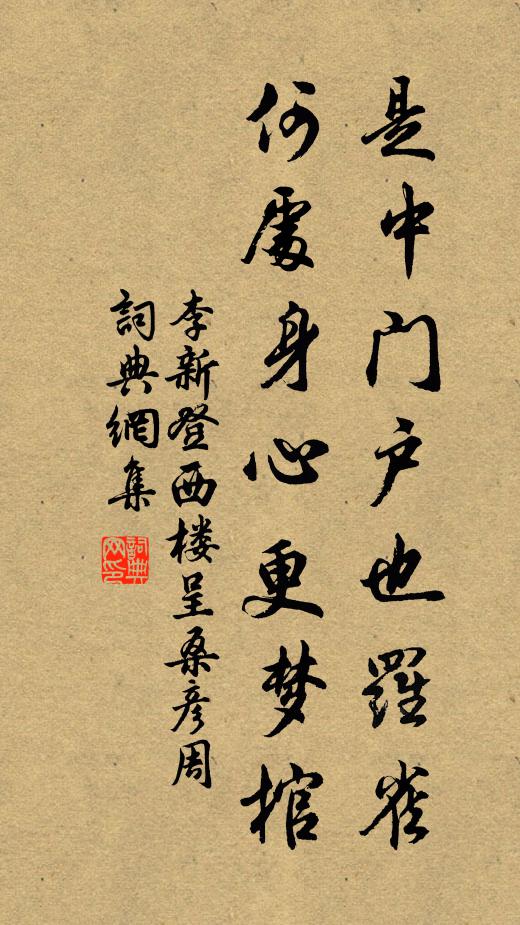 是中门户也羅雀
何處身心更梦棺
李新登西楼呈桑彦周
詞典網集
詞典网印